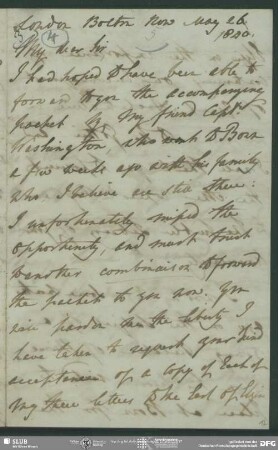 London Bolton Row May 26
1840.
(4)
My dear Sir
I had hoped to have been able to
forward to you the accompanying
packet by my friend Capt.
Washington, who went to Bonn
a few weeks ago with his family
who I believe are still there:
I unfortunately missed the
opportunity, and must trust
to another to forward
the packet to you now. You
will pardon me the liberty I
have taken to request your kind
acceptance of a copy of each of
my three letters to the Earl of Elgin
SLUB
DFG